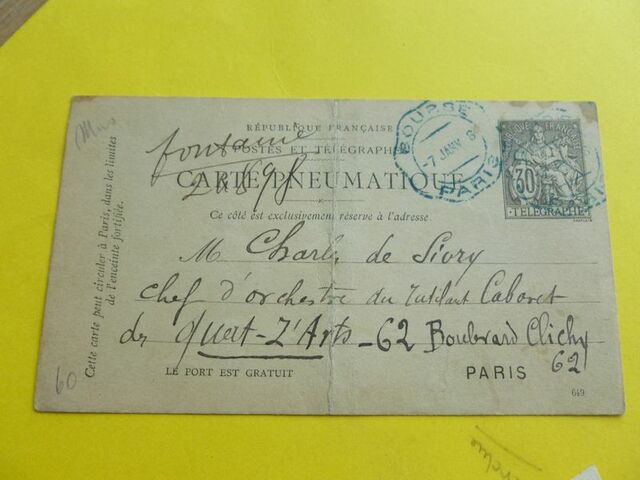 RÉPUBLIQUE FRANÇAISE
POSTES ET TÉLÉGRAPHES
CARTE PNEUMATIQUE
Ce côté est exclusivement réservé à l'adresse.
fontaine
BOURSE
-7 JANV 8
PARIS
30
TÉLÉGRAPHE
M Charles de Sivry
chef d'orchestre du Cabaret
des Quat-Z'Arts - 62 Boulevard Clichy
62
LE PORT EST GRATUIT
PARIS
649
Cette carte peut circuler à Paris, dans les limites
de l'enceinte fortifiée.
60